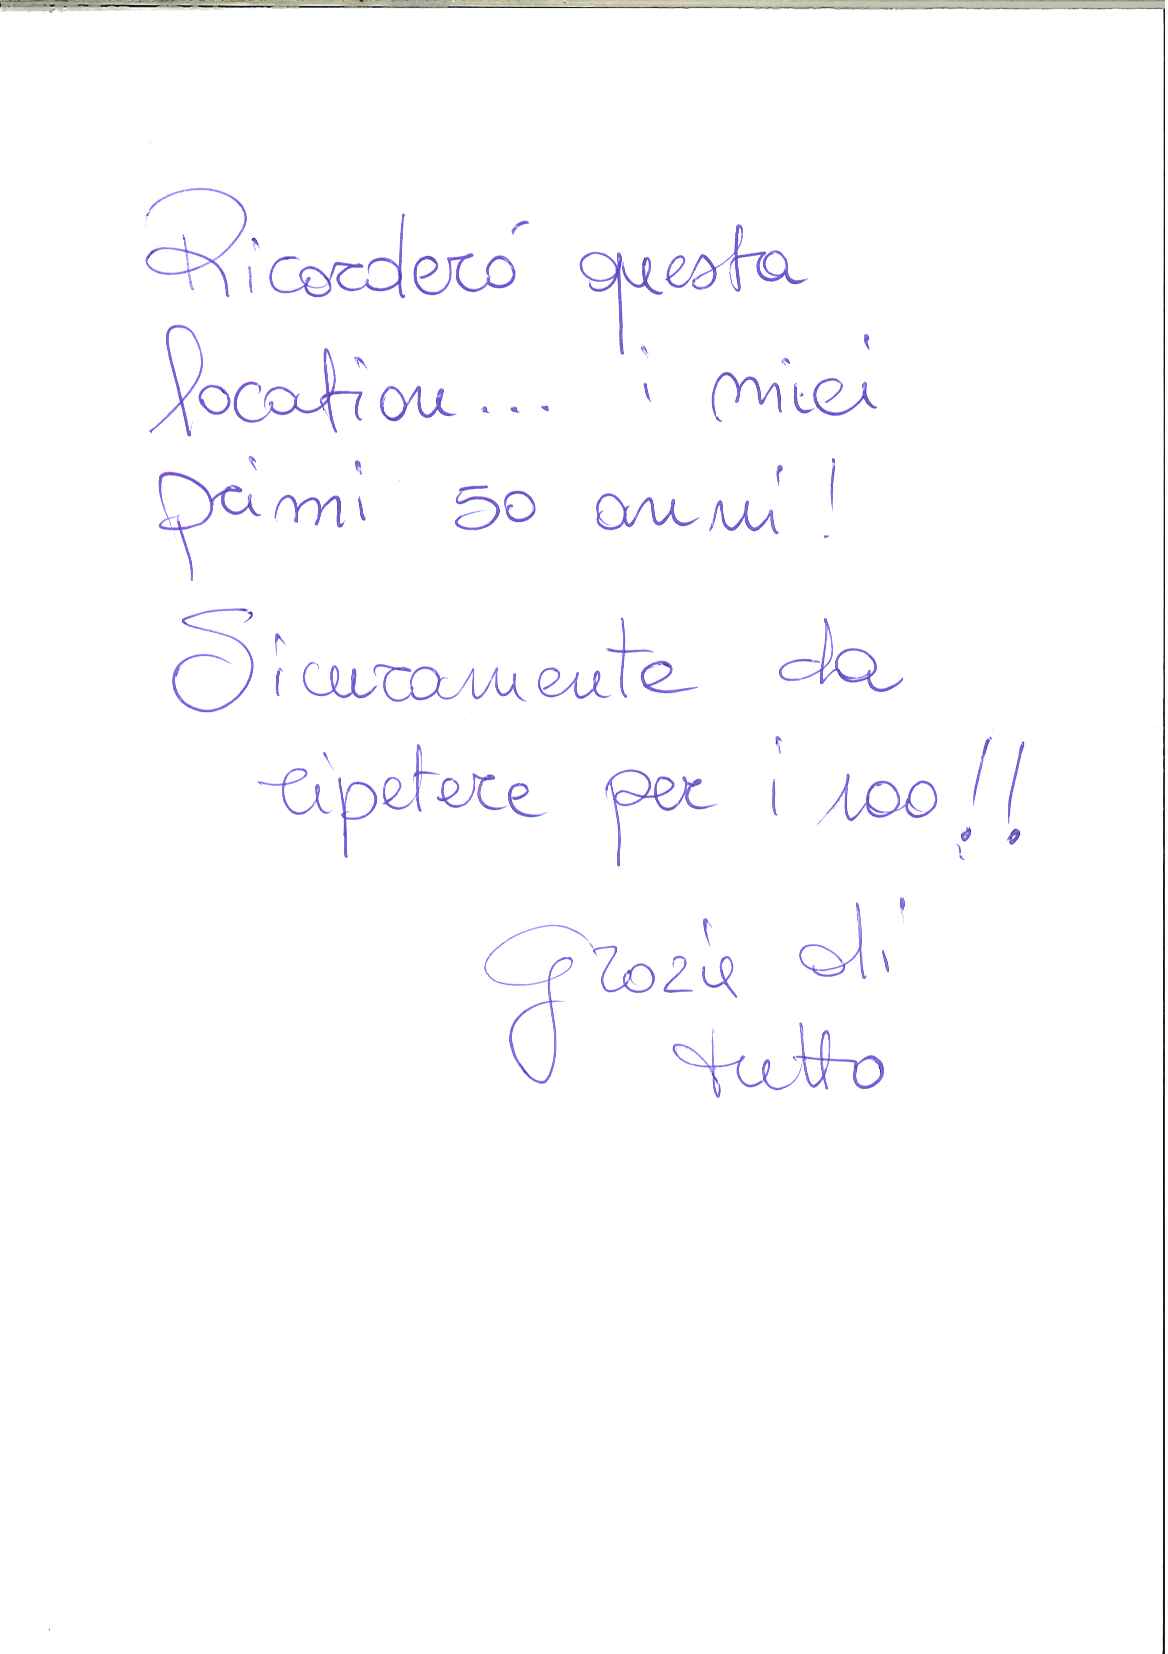 Ricorderó questa
location... i miei
primi 50 anni!
Sicuramente da
ripetere per i 100!!
Grazie di
tutto